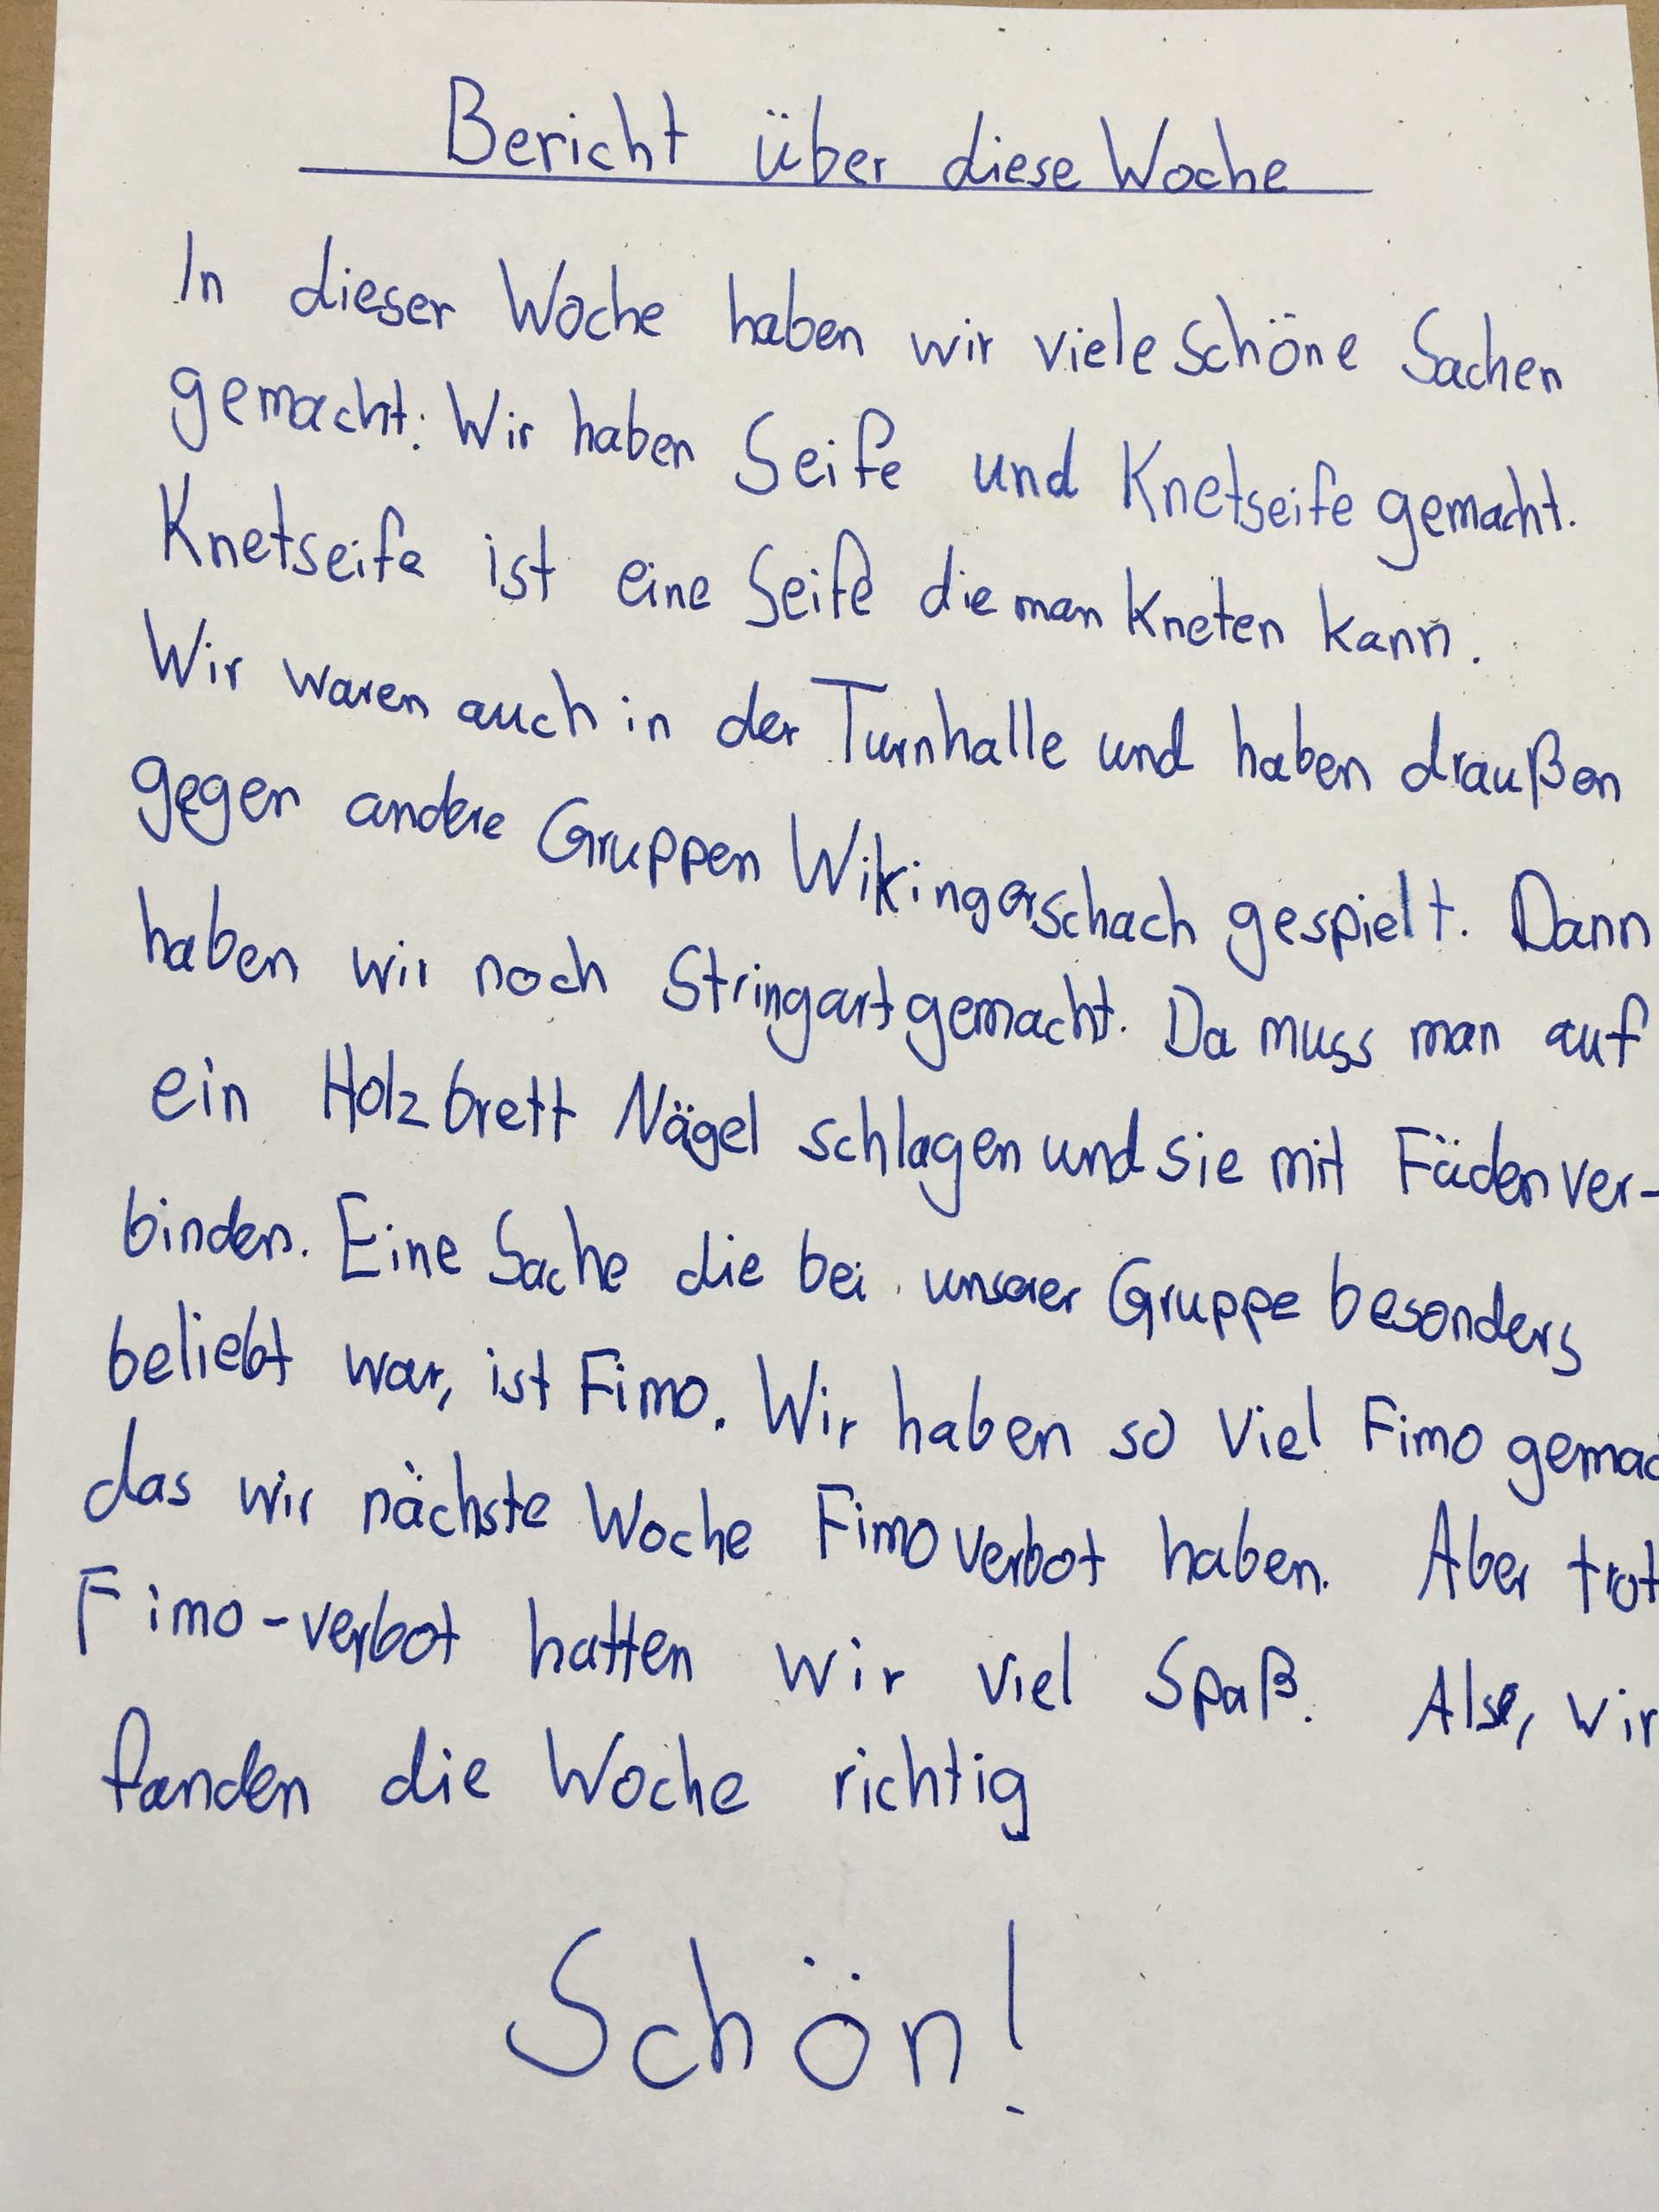 Bericht über diese Woche
In dieser Woche haben wir viele schöne Sachen
gemacht: Wir haben Seife und Knetseife gemacht.
Knetseife ist eine Seife die man Kneten kann.
Wir waren auch in der Turnhalle und haben draußen
gegen andere Gruppen Wikingerschach gespielt. Dann
haben wir noch Stringart gemacht. Da muss man auf
ein Holzbrett Nägel schlagen und sie mit Fäden ver-
binden. Eine Sache die bei unserer Gruppe besonders
beliebt war, ist Fimo. Wir haben so viel Fimo gemac
das wir nächste Woche Fimo verbot haben. Aber trot
Fimo-verbot hatten wir viel Spaß. Also, wir
fanden die Woche richtig
Schön!